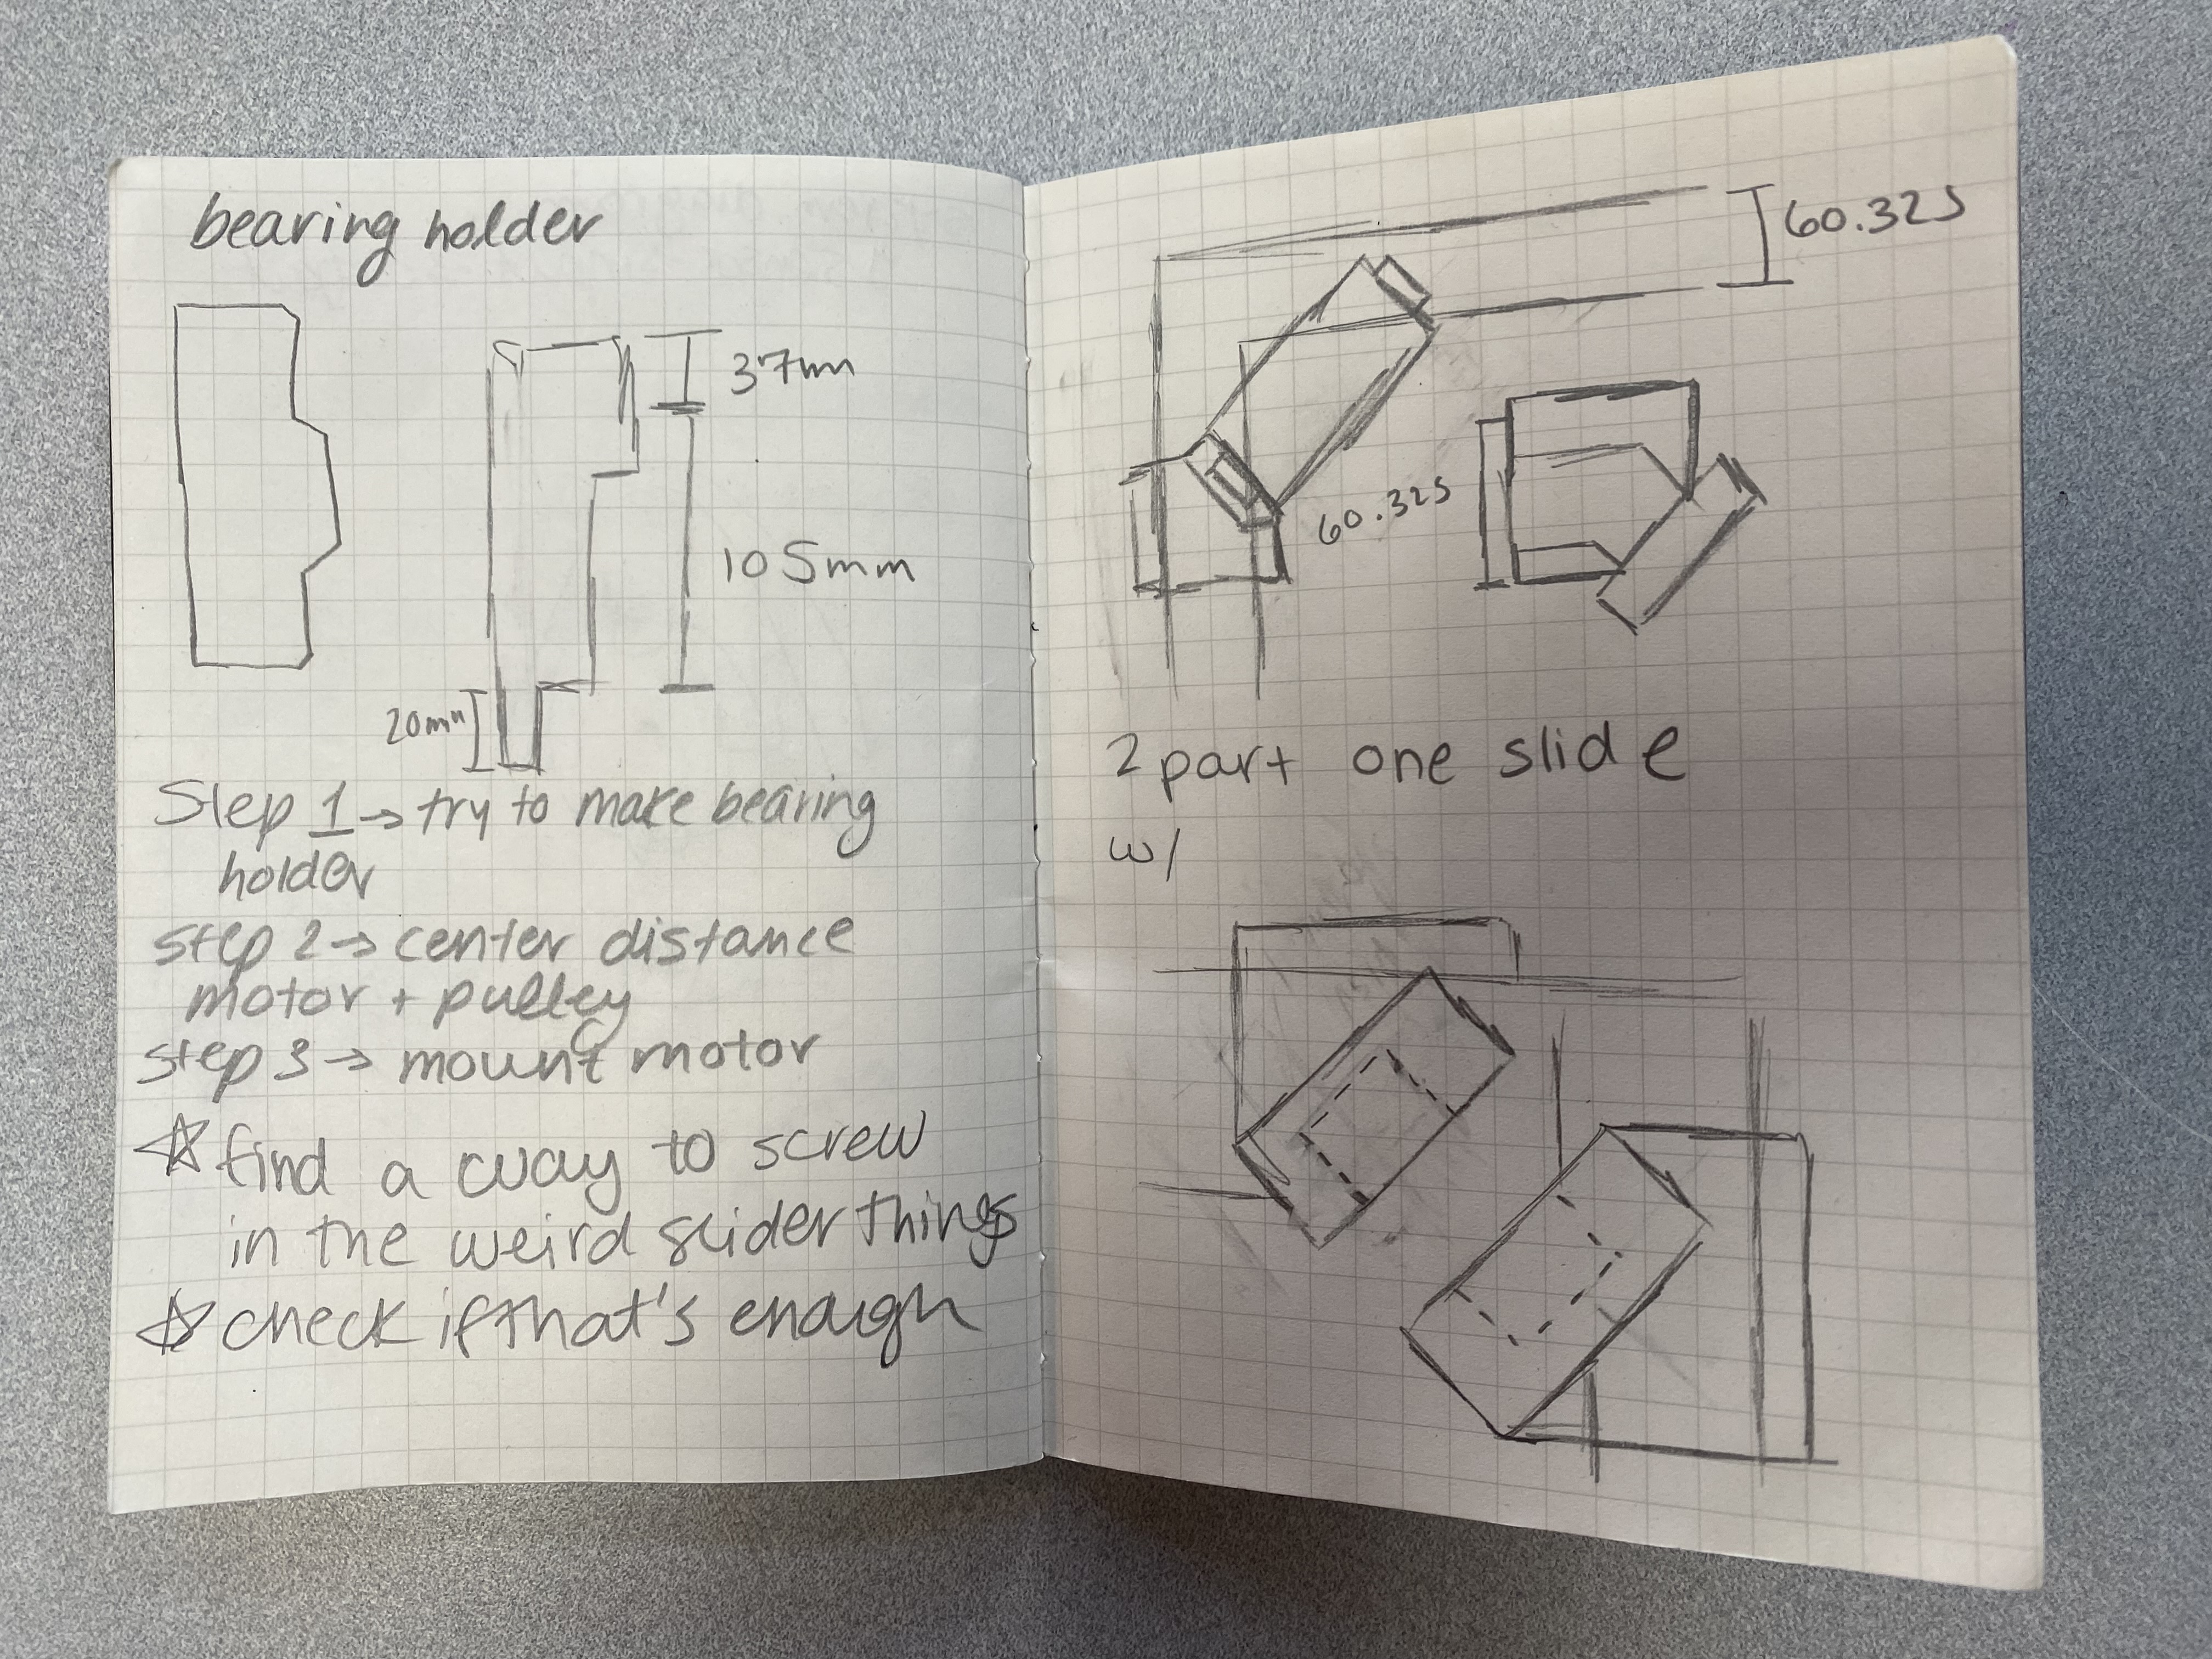 bearing holder
37m
105mm
20mm
Step 1 → try to make bearing
holder
step 2 → center distance
motor + pulley
step 3 → mount motor
☆ find a way to screw
in the weird slider things
☆ check if that's enough
60.325
60.325
2 part one slide
w/